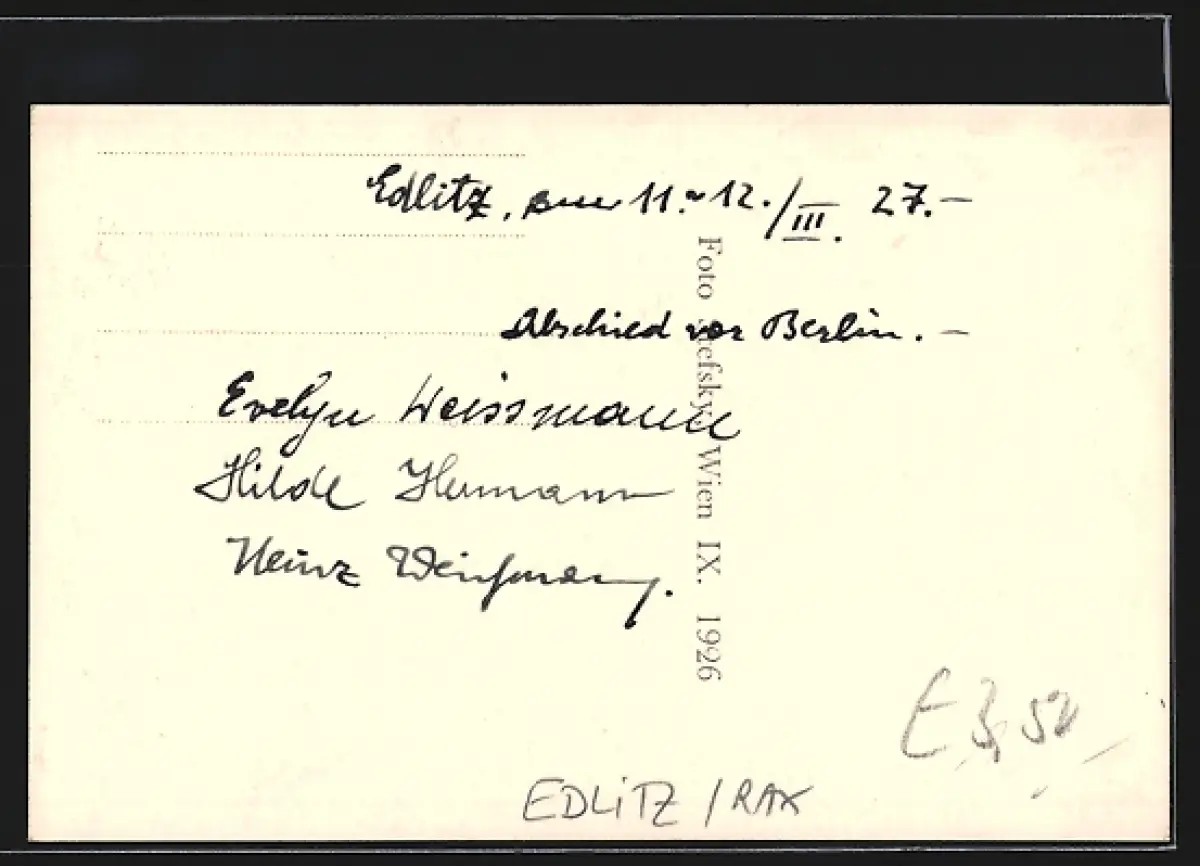 Edlitz, am 11.-12./III. 27.-
Abschied vor Berlin.-
Evelyn Weissmann
Hilde Hermann
Heinz Weißmann.
Foto Stefsky, Wien IX. 1926
E 3,50
EDLITZ / RAX